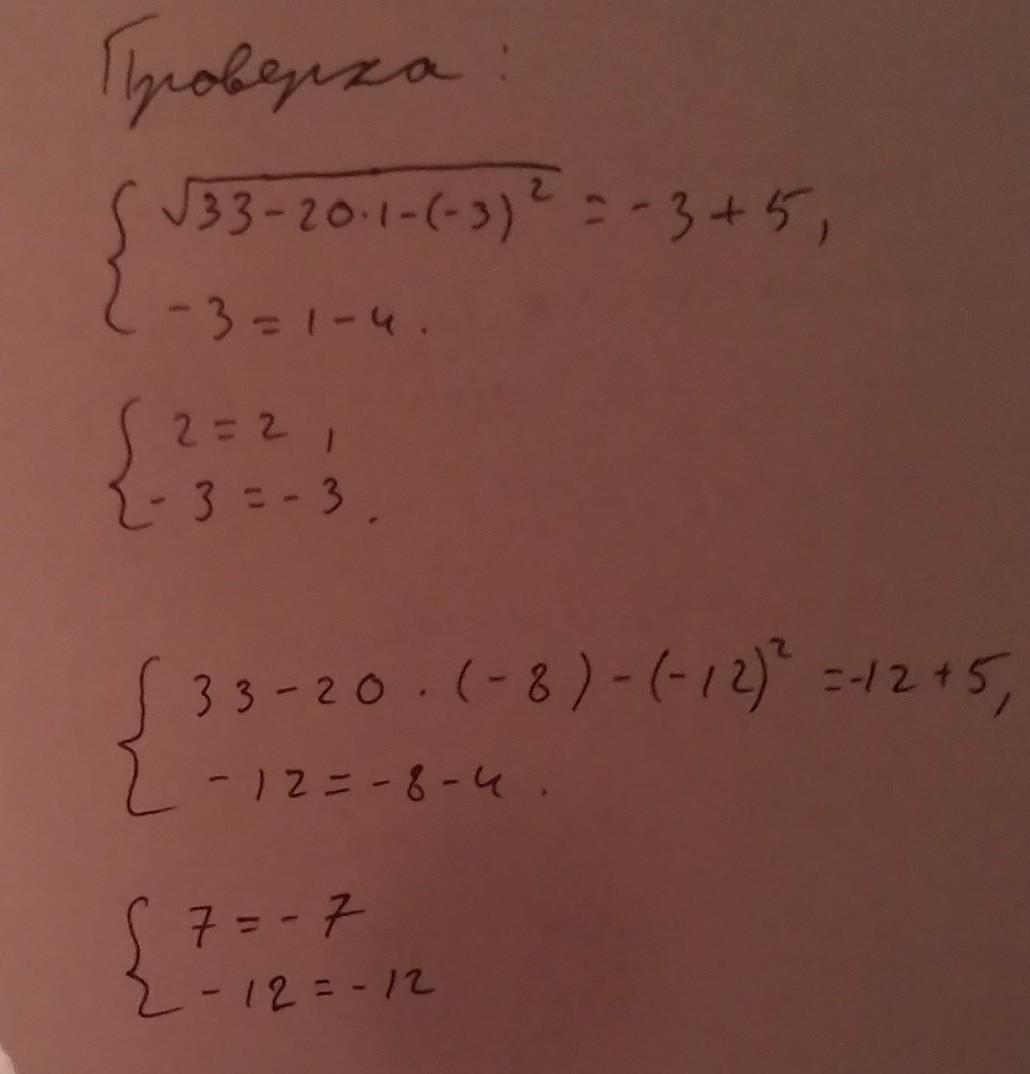 Проверка:
{ √(33-20·1-(-3)²) = -3+5,
-3=1-4.
{ 2=2,
-3=-3.
{ 33-20·(-8)-(-12)² =-12+5,
-12=-8-4.
{ 7=-7
-12=-12